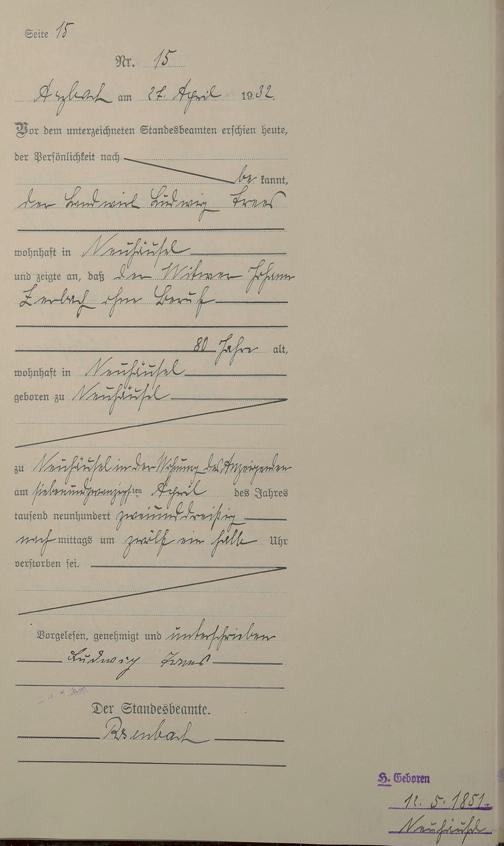 Seite 15
Nr. 15
Arzbach am 27. April 1932.
Vor dem unterzeichneten Standesbeamten erschien heute,
der Persönlichkeit nach
be kannt,
der Landwirt Ludwig
wohnhaft in Neuhäusel
und zeigte an, daß der Witwer Johann
Zerbach ohne Beruf
80 Jahre alt,
wohnhaft in Neuhäusel
geboren zu Neuhäusel
zu Neuhäusel in der Wohnung des Anzeigenden
am siebenundzwanzigsten April des Jahres
tausend neunhundert zweiunddreißig
nach mittags um zwölf ein halb Uhr
verstorben sei.
Vorgelesen, genehmigt und unterschrieben
Ludwig
Der Standesbeamte.
H. Geboren
12. 5. 1851.
Neuhäusel